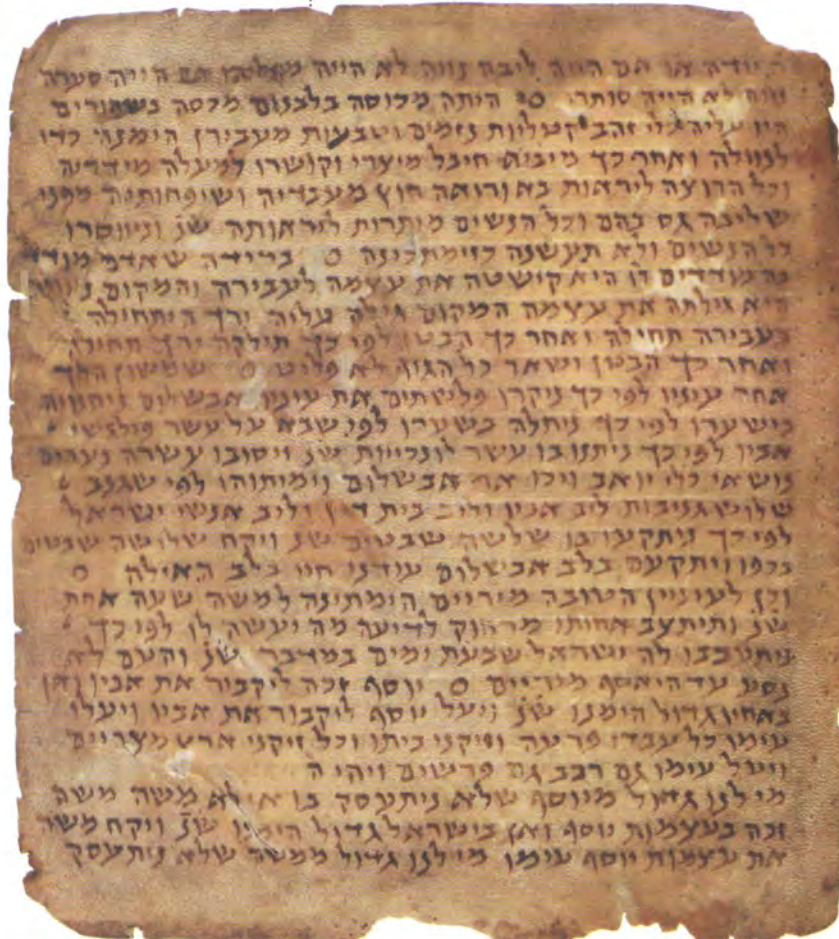 היודה או אם היה ליבה נווה לא הייה מגלהו אם הייה סערה
נווה לא הייה סותרו ס היתה מכוסה בלבנום מכסה בשחורים
היו עליה כלי זהב קטליות נזמים וטבעות מעבירן הימנה כדו
לנוולה ואחר כך מיביא חיבל מיצרי וקושרו למעלה מידדיה
וכל הרוצה ליראות בא ורואה חוץ מעבדיה ושיפחותיה מפני
שליבה גס בהם וכל הנשים מותרות ליראותה שנ׳ וניווסרו
כל הנשים ולא תעשנה כזימתכינה ס במידה שאדם מודד
בה מודדים לו היא קישטה את עצמה לעבירה והמקום ניוולה
היא גילתה את עצמה המקום גילה עליה ירך התחילה
בעבירה תחילה ואחר כך הבטן לפי כך תילקה ירך תחילה
ואחר כך הבטן ושאר כל הגוף לא פליט ס שמשון הלך
אחר עיניו לפי כך ניקרו פלישתים את עיניו אבשלום ניתנווה
בישערו לפי כך ניתלה בשערו לפי שבא על עשר פילגשי
אביו לפי כך ניתנו בו עשר לונכייות שנ׳ ויסובו עשרה נערים
נושאי כלי יואב ויכו את אבשלום וימיתוהו לפי שגנב
שלוש גניבות ליב אביו וליב בית דין וליב אנשי ישראל
לפי כך ניתקעו בו שלשה שבטים שנ׳ ויקח שלושה שבטים
בכפו ויתקעם בלב אבשלום עודנו חי בלב האילה ס
וכן לעיניין הטובה מיריים הימתינה למשה שעה אחת
שנ׳ ותיתצב אחותו מרחוק לדיעה מה יעשה לו לפי כך
ניתעכבו לה ישראל שבעת ימים במדבר שנ׳ והעם לא
נסע עד היאסף מיריים ס יוסף זכה ליקבור את אביו ואין
באחיו גדול הימנו שנ׳ ויעל יוסף ליקבור את אביו ויעלו
עימו כל עבדו פרעה וזיקני ביתו וכל זיקני ארץ מצריים
ויעל עימו גם רכב גם פרשים ויהי ה
מי לנו גדול מיוסף שלא ניתעסק בו אילא משה משה
זכה בעצמות יוסף ואין בישראל גדול הימינו שנ׳ ויקח משה
את עצמות יוסף עימו מי לנו גדול ממשה שלא ניתעסק